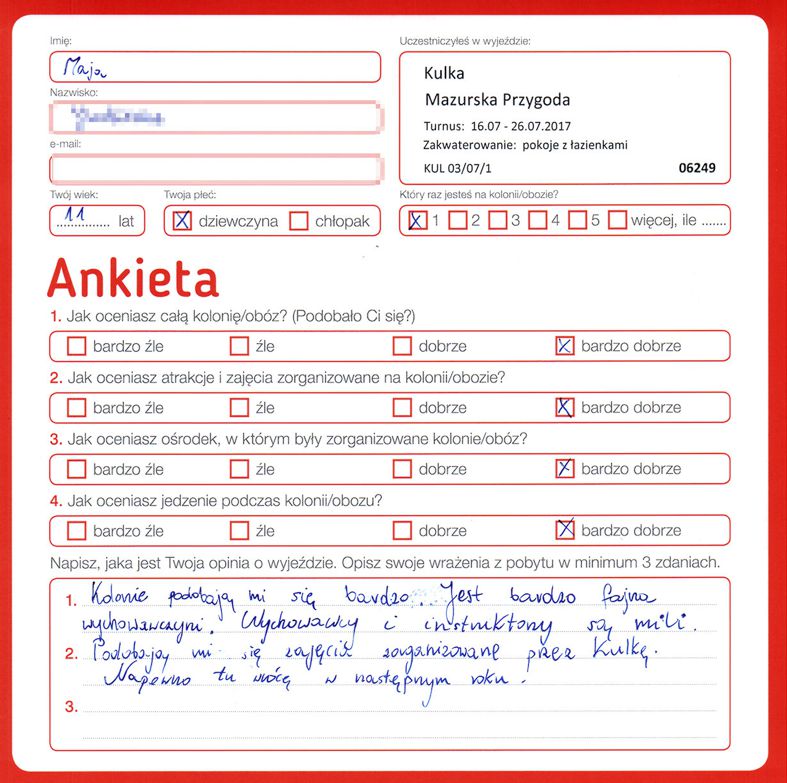 Imię:
Maja
Nazwisko:
e-mail:
Twój wiek:
11 lat
Twoja płeć:
X dziewczyna chłopak
Uczestniczyłeś w wyjeździe:
Kulka
Mazurska Przygoda
Turnus: 16.07 - 26.07.2017
Zakwaterowanie: pokoje z łazienkami
KUL 03/07/1 06249
Który raz jesteś na kolonii/obozie?
X 1 2 3 4 5 więcej, ile .......
Ankieta
1. Jak oceniasz całą kolonię/obóz? (Podobało Ci się?)
bardzo źle źle dobrze X bardzo dobrze
2. Jak oceniasz atrakcje i zajęcia zorganizowane na kolonii/obozie?
bardzo źle źle dobrze X bardzo dobrze
3. Jak oceniasz ośrodek, w którym były zorganizowane kolonie/obóz?
bardzo źle źle dobrze X bardzo dobrze
4. Jak oceniasz jedzenie podczas kolonii/obozu?
bardzo źle źle dobrze X bardzo dobrze
Napisz, jaka jest Twoja opinia o wyjeździe. Opisz swoje wrażenia z pobytu w minimum 3 zdaniach.
1. Kolonie podobają mi się bardzo. Jest bardzo fajna
wychowawczyni. Wychowawcy i instruktorzy są mili.
2. Podobają mi się zajęcia zorganizowane przez Kulkę.
Napewno tu wrócę w następnym roku.
3.